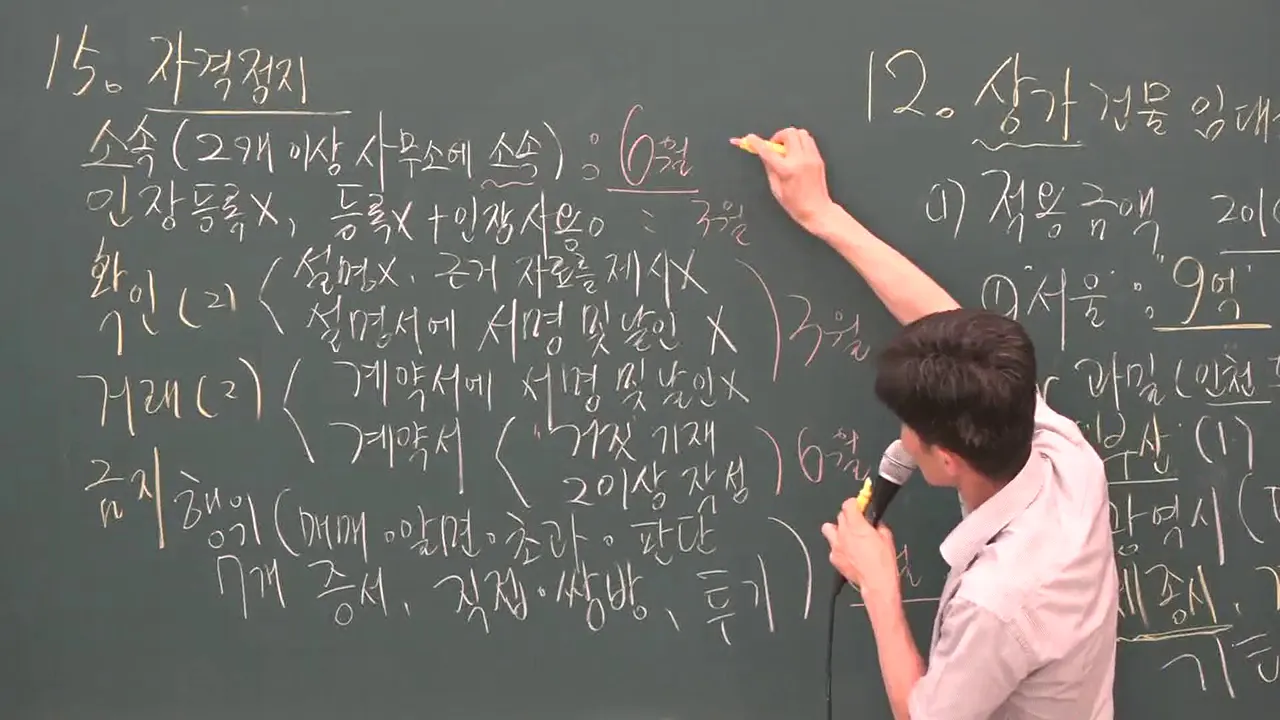 15. 자격정지
소속(2개 이상 사무소에 소속) : 6월
인장등록X, 등록X+인장사용O : 3월
확인(2) 설명X. 근거 자료를 제시X
설명서에 서명 및 날인 X
3월
거래(2) 계약서에 서명 및 날인X
계약서 거짓 기재
2이상 작성
6월
금지행위(매매·알면·초과·판단
7개 증서, 직접·쌍방, 투기)
월
12. 상가 건물 임대
(1) 적용 금액 201
① 서울 : "9억"
과밀(인천
부산 (1)
광역시(
세종시,
기